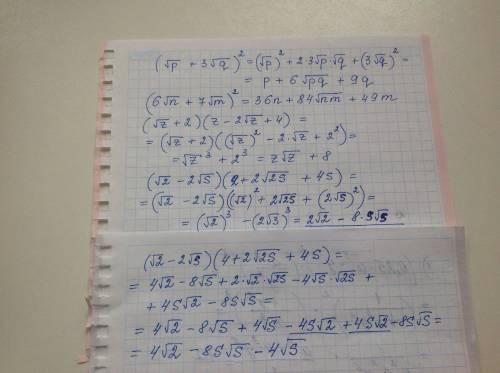 (√p + 3√q)² = (√p)² + 2·3√p·√q + (3√q)² =
= p + 6√pq + 9q
(6√n + 7√m)² = 36n + 84√nm + 49m
(√z + 2)(z - 2√z + 4) =
= (√z + 2)((√z)² - 2·√z + 2²) =
= √z³ + 2³ = z√z + 8
(√2 - 2√S)(2 + 2√2S + 4S) =
= (√2 - 2√S)((√2)² + 2√2S + (2√S)²) =
= (√2)³ - (2√S)³ = 2√2 - 8·S√S
(√2 - 2√S)(4 + 2√2S + 4S) =
= 4√2 - 8√S + 2·√2·√2S - 4√S·√2S +
+ 4S√2 - 8S√S =
= 4√2 - 8√S + 4√S - 4S√2 + 4S√2 - 8S√S =
= 4√2 - 8S√S - 4√S